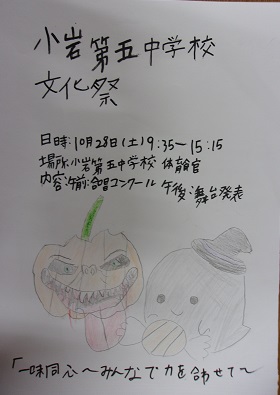 小岩第五中学校
文化祭
日時:10月28日(土)9:35〜15:15
場所:小岩第五中学校 体育館
内容:午前:合唱コンクール 午後:舞台発表
「一味同心〜みんなで力を合わせて〜